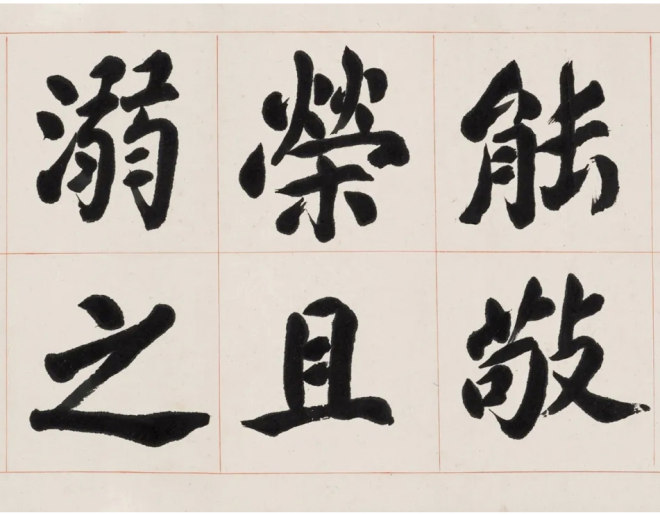 能敬
榮且
溺之